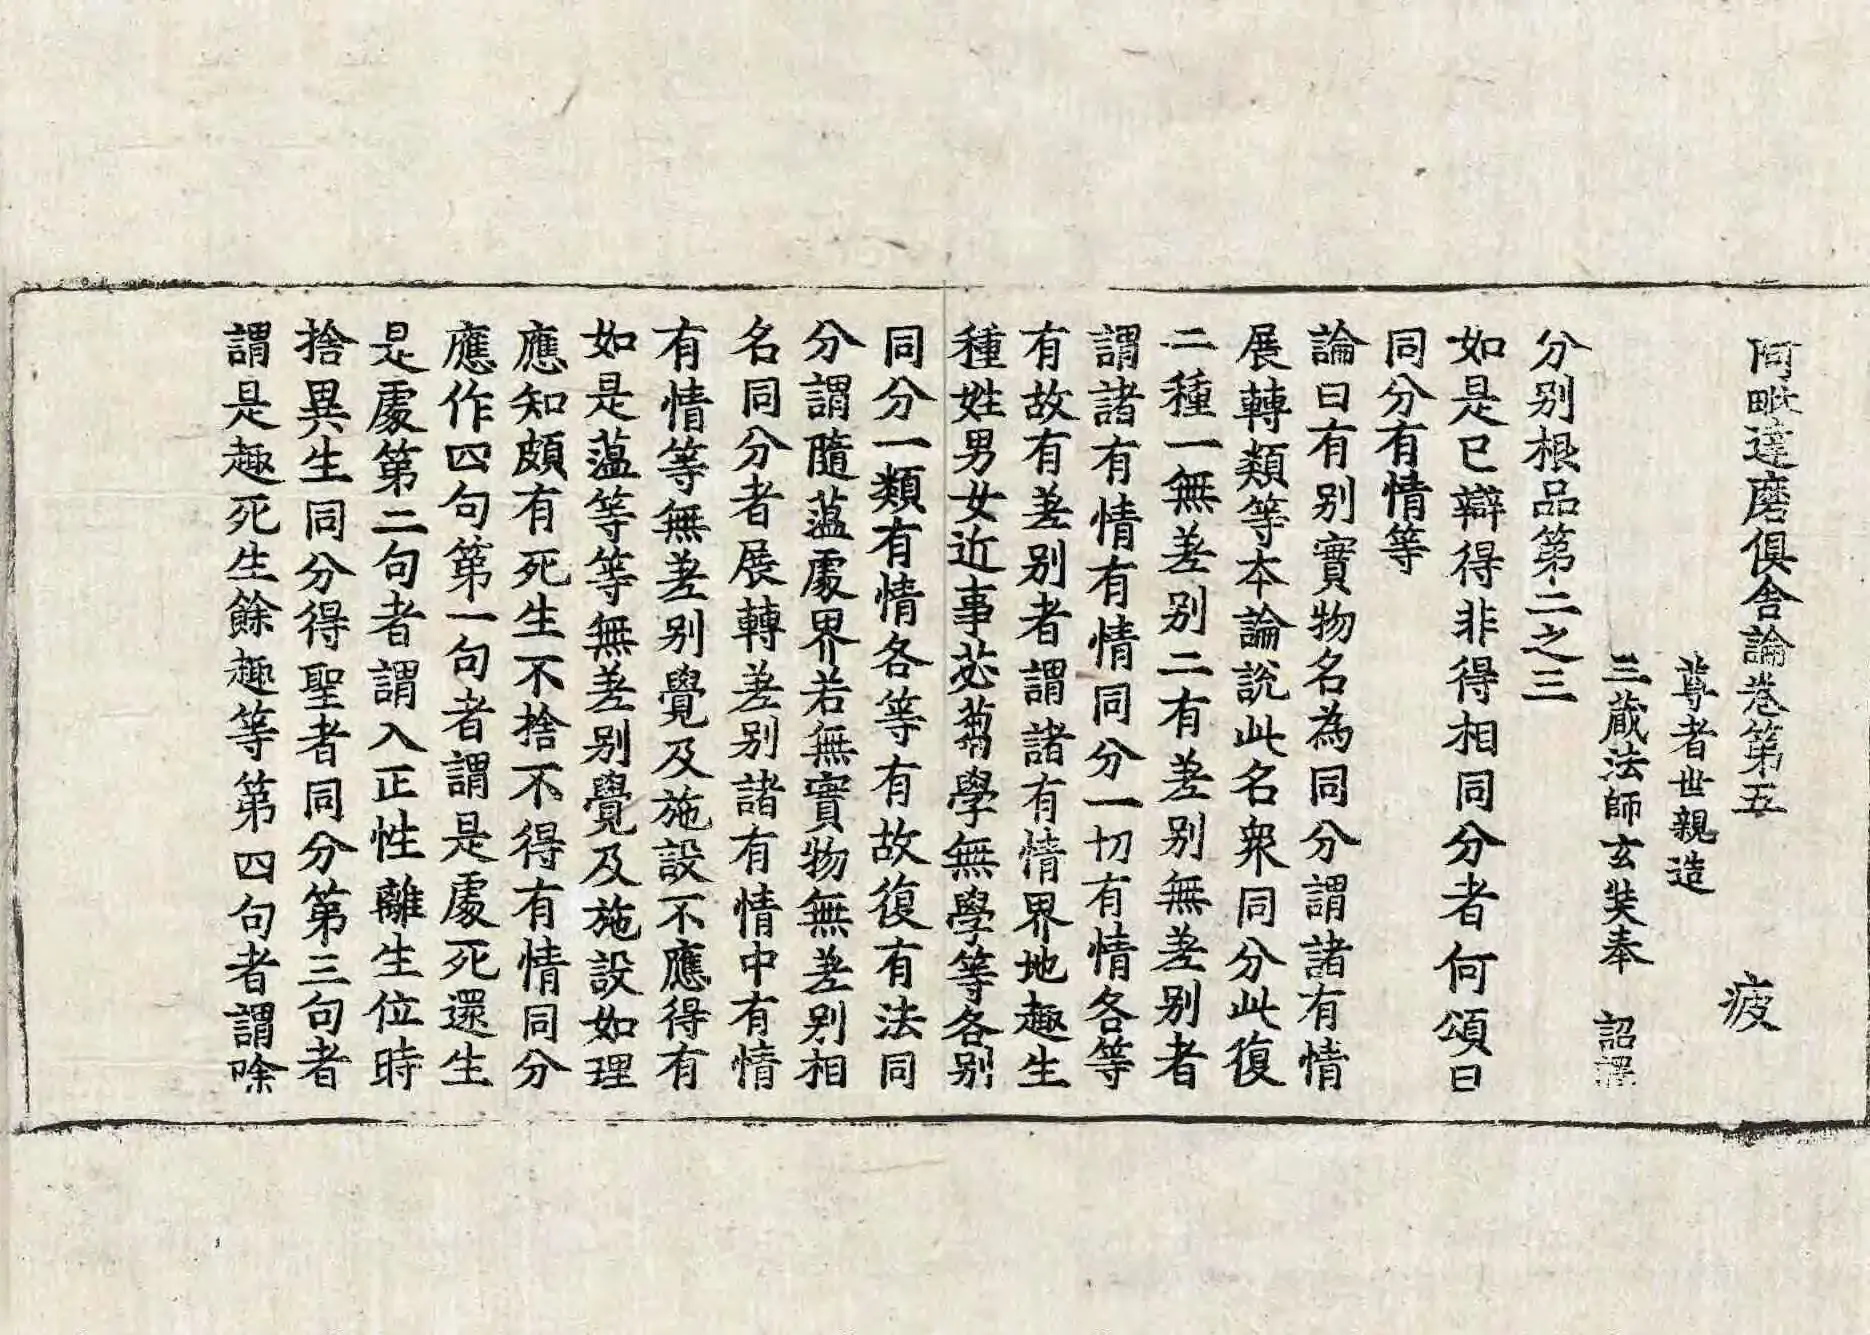 阿毗達磨俱舍論卷第五 疲
尊者世親造
三藏法師玄奘奉 詔譯
分別根品第二之三
如是已辯得非得相同分者何頌曰
同分有情等
論曰有別實物名為同分謂諸有情
展轉類等本論說此名衆同分此復
二種一無差別二有差別無差別者
謂諸有情有情同分一切有情各等
有故有差別者謂諸有情界地趣生
種姓男女近事苾蒭學無學等各別
同分一類有情各等有故復有法同
分謂隨蘊處界若無實物無差別相
名同分者展轉差別諸有情中有情
有情等無差別覺及施設不應得有
如是蘊等等無差別覺及施設如理
應知頗有死生不捨不得有情同分
應作四句第一句者謂是處死還生
是處第二句者謂入正性離生位時
捨異生同分得聖者同分第三句者
謂是趣死生餘趣等第四句者謂除